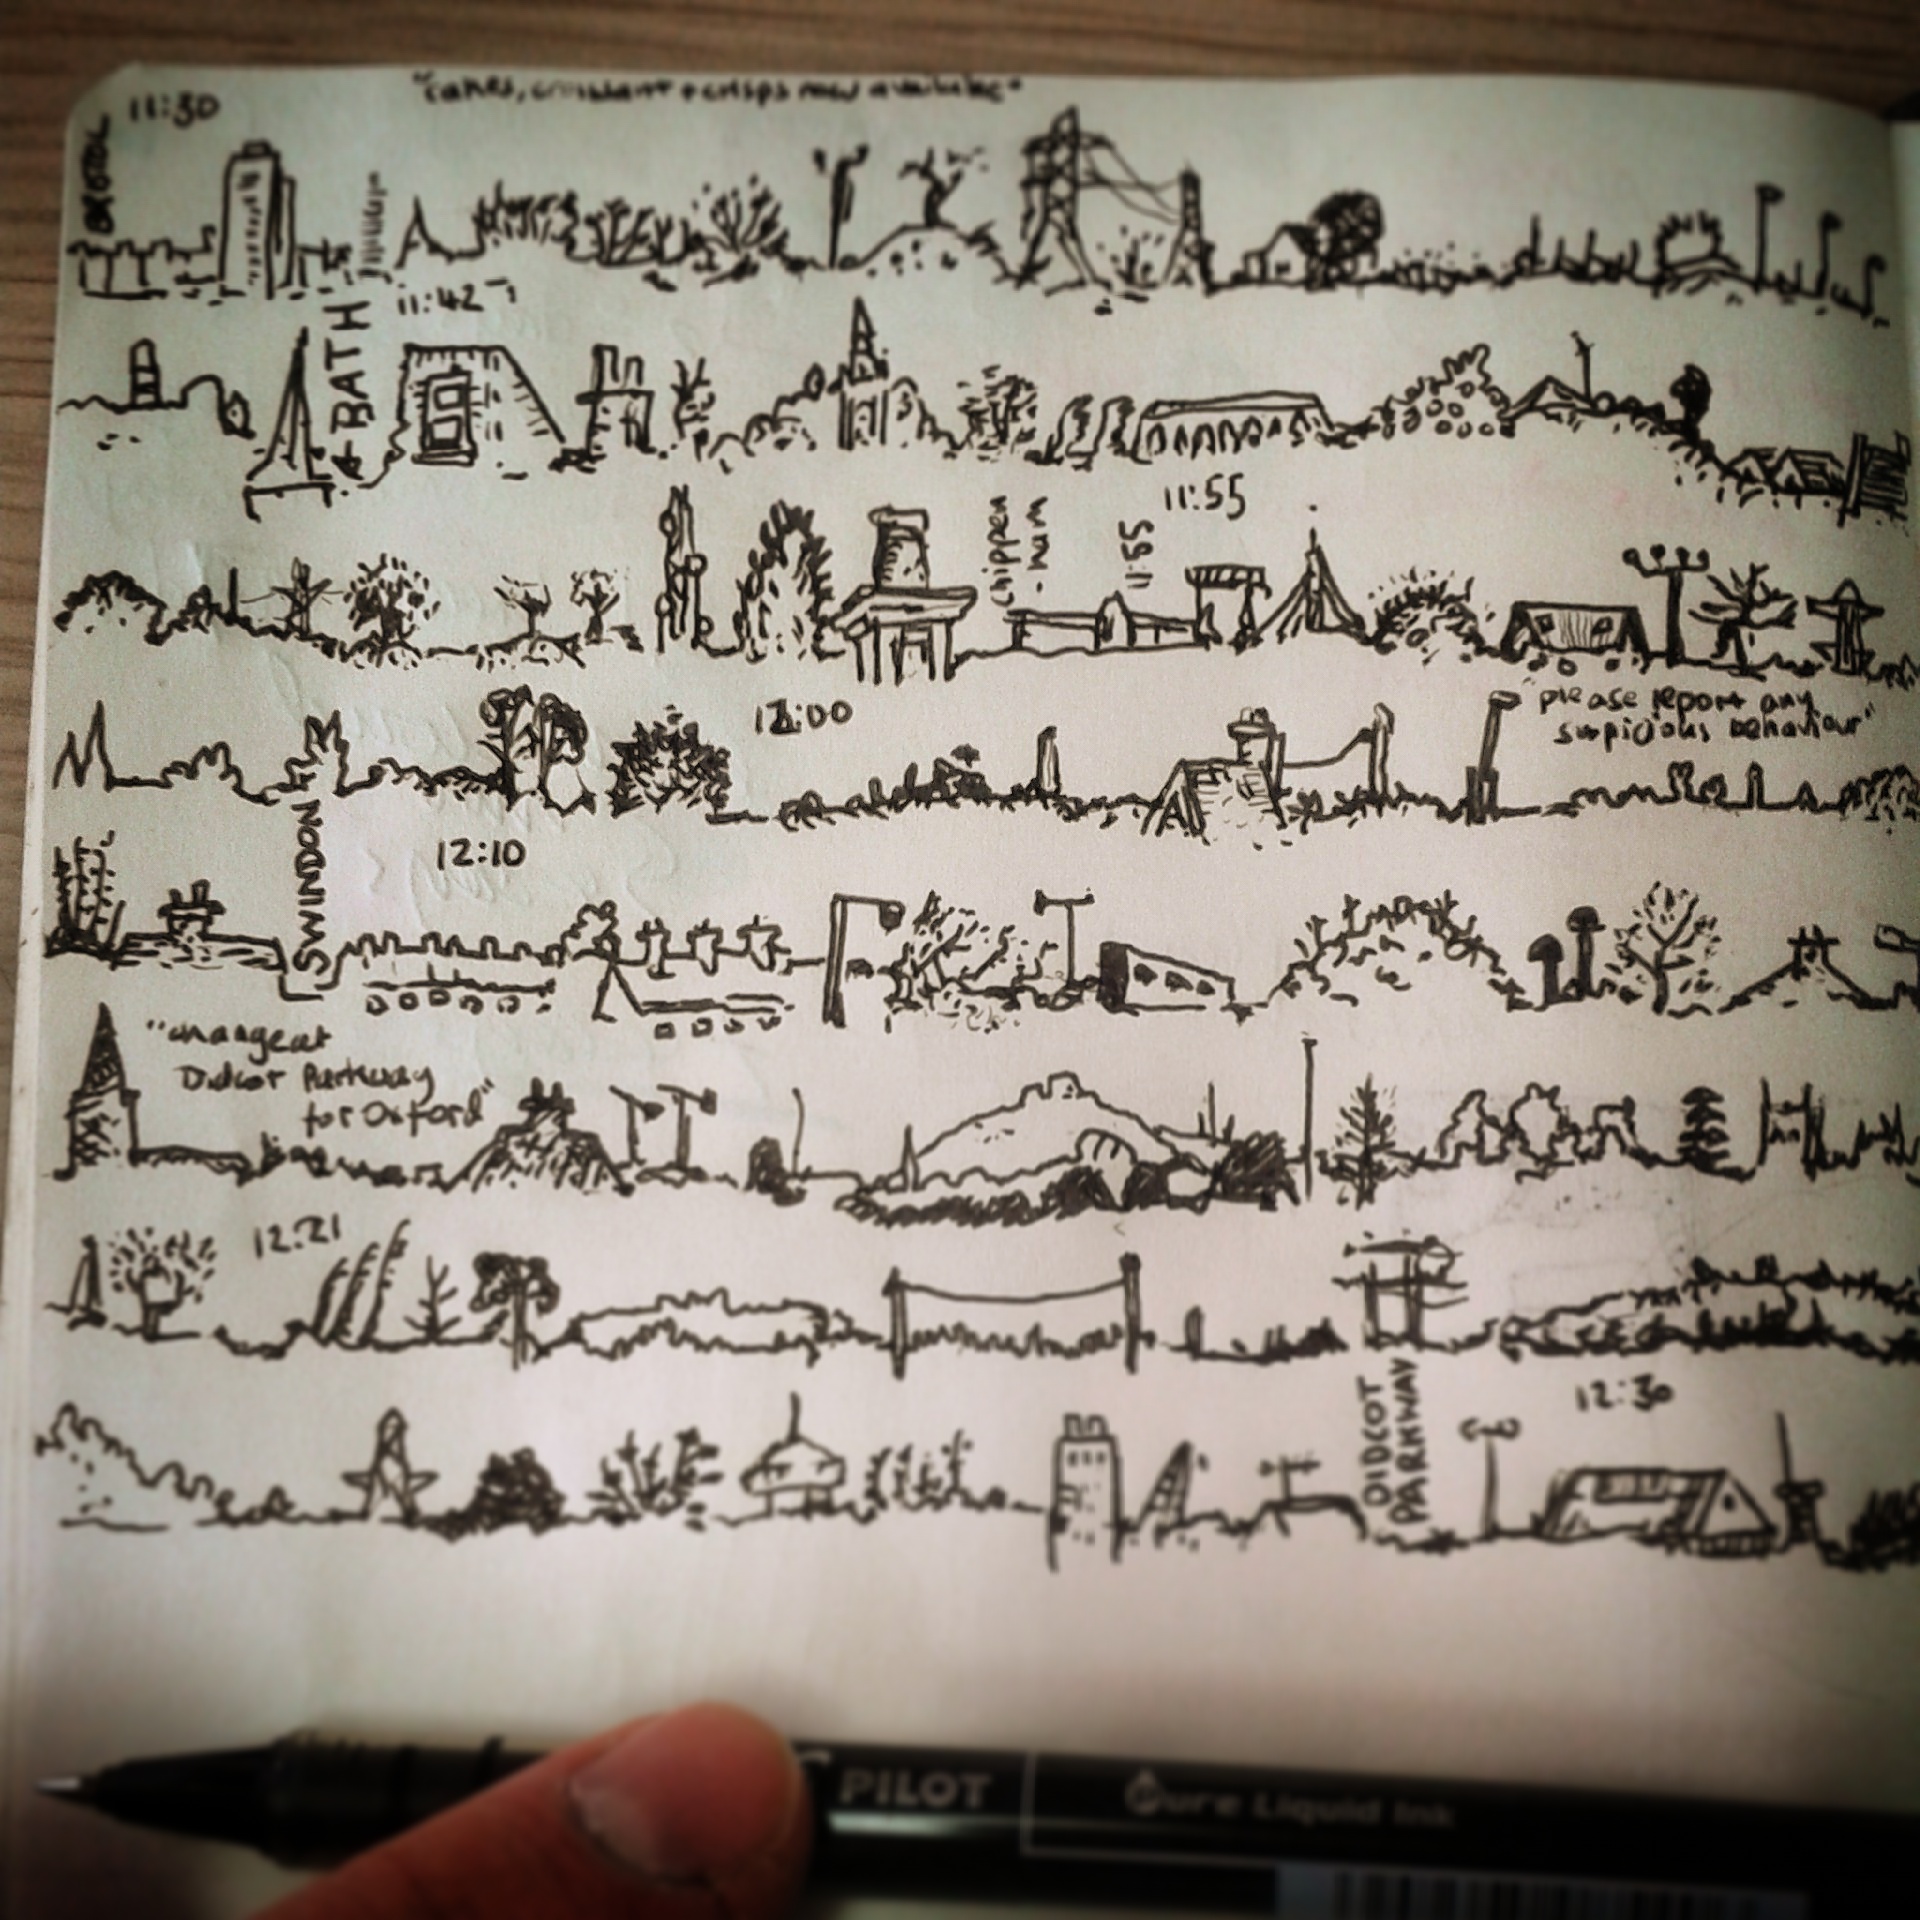 11:30
"cakes, croissant + crisps now available"
BRISTOL
11:42
BATH
11:55
chippen
-ham
11:55
12:00
"please report any
suspicious behaviour"
SWINDON
12:10
"change at
Didcot Parkway
for Oxford"
12:21
12:30
DIDCOT
PARKWAY
PILOT
Pure Liquid Ink